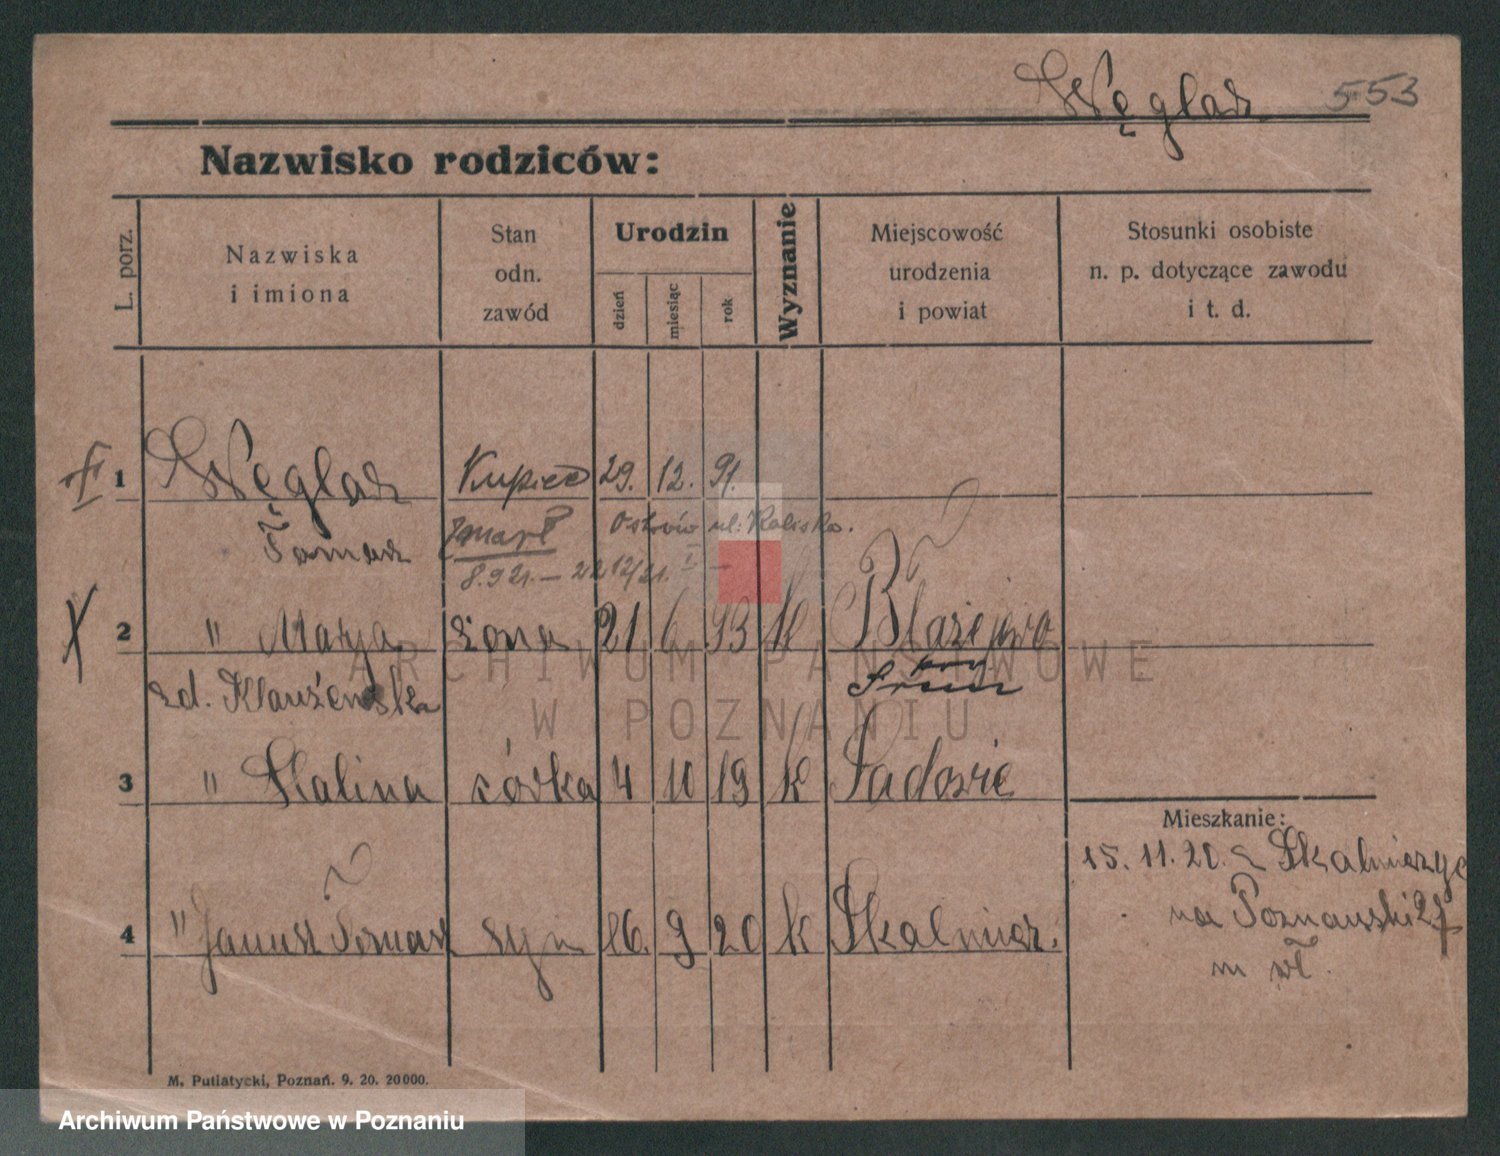 Węglarz 553
Nazwisko rodziców:
L. porz.
Nazwiska
i imiona
Stan
odn.
zawód
Urodzin
dzień
miesiąc
rok
Wyznanie
Miejscowość
urodzenia
i powiat
Stosunki osobiste
n. p. dotyczące zawodu
i t. d.
1 Węglarz Kupiec 29. 12. 91.
Tomasz Zmarł Ostrów ul: Kaliska.
8.9 21. — 22 12/21. I —
2 " Marya żona 21 6 93 k Błażejewo
zd. Śrem
3 " Halina córka 4 10 19 k Sadowie
Mieszkanie:
15. 11. 20. z Skalmierzyc
4 " Janusz Tomasz syn 16. 9 20 k Skalmierz.
na Poznański 27
m wł.
M. Putiatycki, Poznań. 9. 20. 20000.
ARCHIWUM PAŃSTWOWE
W POZNANIU
Archiwum Państwowe w Poznaniu